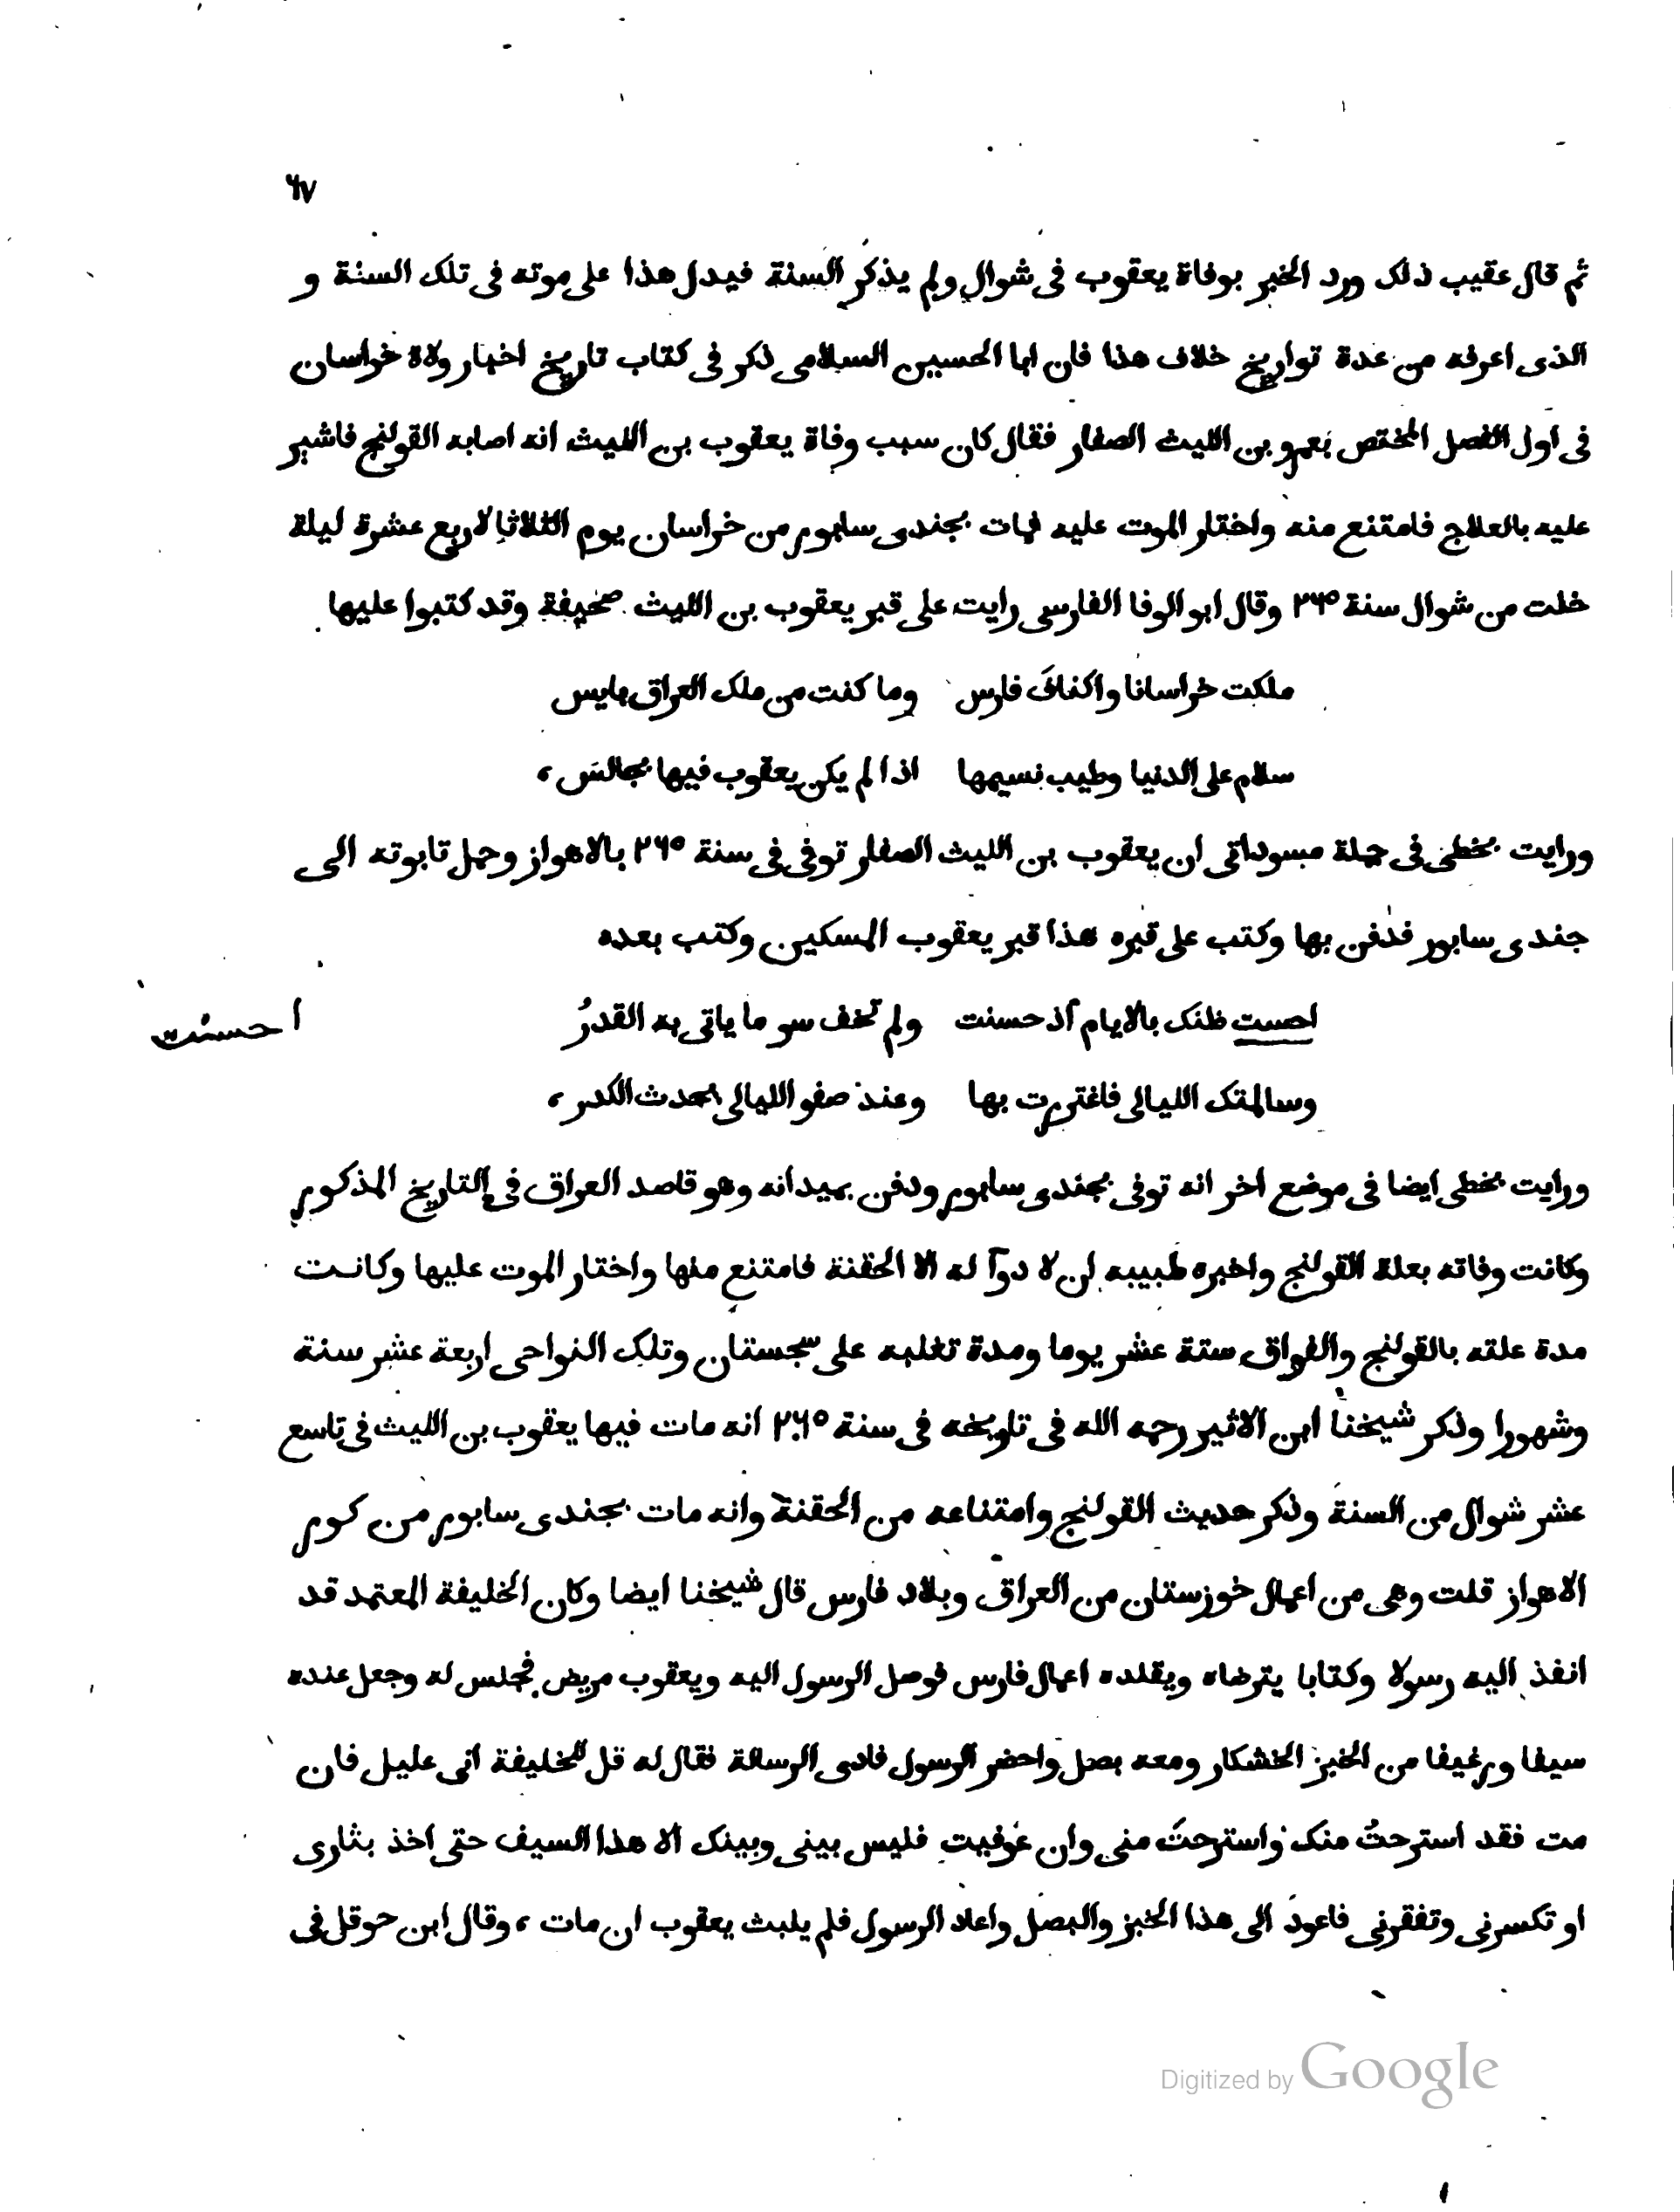 ٦٧
ثم قال عقيب ذلك ورد الخبر بوفاة يعقوب فى شوال ولم يذكر السنة فيدل هذا على موته فى تلك السنة و
الذى اعرفه من عدة تواريخ خلاف هذا فان ابا الحسين السلامى ذكر فى كتاب تاريخ اخبار ولاة خراسان
فى اول الفصل المختص بعمرو بن الليث الصفار فقال كان سبب وفاة يعقوب بن الليث انه اصابه القولنج فاشير
عليه بالعلاج فامتنع منه واختار الموت عليه فمات بجندى سابور من خراسان يوم الثلاثا لاربع عشرة ليلة
خلت من شوال سنة ٢٦٥ وقال ابو الوفا الفارسى رايت على قبر يعقوب بن الليث صحيفة وقد كتبوا عليها
ملكت خراسانا واكنافَ فارس وما كنت من ملك العراق بايس
سلام على الدنيا وطيب نسيمها اذا لم يكن يعقوب فيها بجالس ،
ورايت بخطى فى جملة مسوداتى ان يعقوب بن الليث الصفار توفى فى سنة ٢٦٥ بالاهواز وحمل تابوته الى
جندى سابور فدفن بها وكتب على قبره هذا قبر يعقوب المسكين وكتب بعده
احست ظنك بالايام اذ حسنت ولم تخف سو ما ياتى به القدرُ
احسنت
وسالمتك الليالى فاغتررت بها وعند صفو الليالى يحدث الكدر ،
ورايت بخطى ايضا فى موضع اخر انه توفى بجندى سابور ودفن بميدانه وهو قاصد العراق فى التاريخ المذكور
وكانت وفاته بعلة القولنج واخبره طبيبه ان لا دوآ له الا الحقنة فامتنع منها واختار الموت عليها وكانت
مدة علته بالقولنج والفواق ستة عشر يوما ومدة تغلبه على سجستان وتلك النواحى اربعة عشر سنة
وشهورا وذكر شيخنا ابن الاثير رحمه الله فى تاريخه فى سنة ٢٦٥ انه مات فيها يعقوب بن الليث فى تاسع
عشر شوال من السنة وذكر حديث القولنج وامتناعه من الحقنة وانه مات بجندى سابور من كور
الاهواز قلت وهى من اعمال خوزستان من العراق وبلاد فارس قال شيخنا ايضا وكان الخليفة المعتمد قد
انفذ اليه رسولا وكتابا يترضاه ويقلده اعمال فارس فوصل الرسول اليه ويعقوب مريض فجلس له وجعل عنده
سيفا ورغيفا من الخبز الخشكار ومعه بصل واحضر الرسول فادى الرسالة فقال له قل للخليفة انى عليل فان
مت فقد استرحتُ منك واسترحتَ منى وان عُوفيت فليس بينى وبينك الا هذا السيف حتى اخذ بثارى
او تكسرنى وتفقرنى فاعود الى هذا الخبز والبصل واعاد الرسول فلم يلبث يعقوب ان مات ، وقال ابن حوقل فى
Digitized by Google